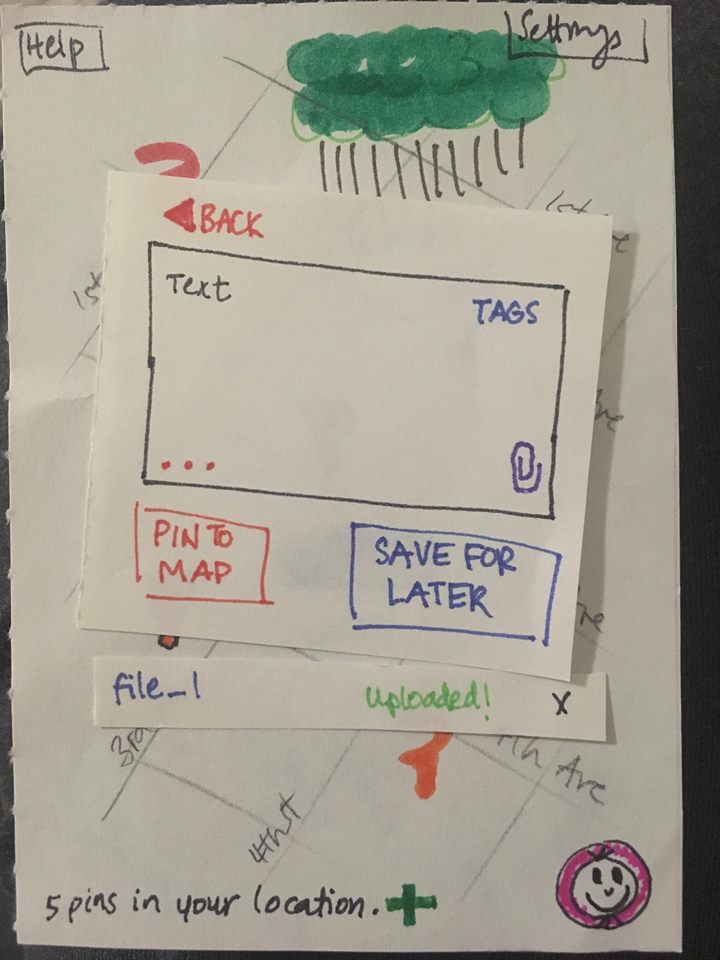 Help
Settings
1st
BACK
Text
TAGS
...
PIN TO
MAP
SAVE FOR
LATER
file_1
uploaded!
X
3rd
Ave
4th st
5 pins in your location. +